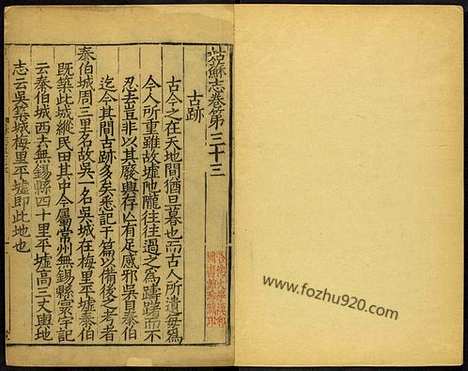 姑蘇志卷第三十三
古跡
古今之在天地間猶旦暮也而古人所遺每為
今人所重雖故墟陁隴往往過之為躊躇而不
忍去豈非以其廢興存亡有足感邪吳自泰伯
迄今其間古跡多矣悉記于篇以備後之考者
泰伯城周三里名故吳一名吳城在梅里平墟泰伯
既築此城縱民田其中今屬常州無錫縣寰宇記
云泰伯城西去無錫縣四十里平墟高三丈輿地
志云吳築城梅里平墟即此地也
www.fozhu920.com